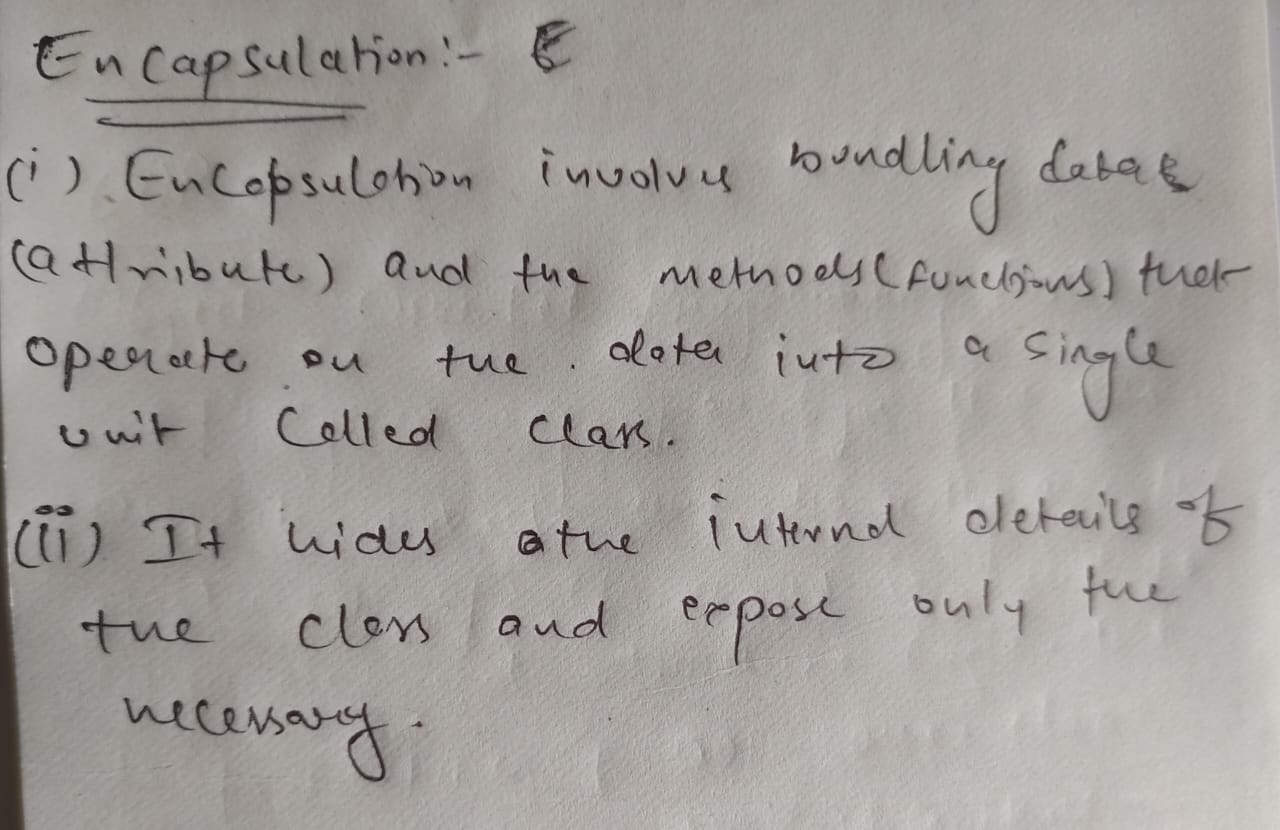 Encapsulation:- E
(i) Encapsulation involves bundling data
(attribute) and the methods (functions) that
operate on the data into a single
unit Called Class.
(ii) It hides the internal details of
the class and expose only the
necessary.